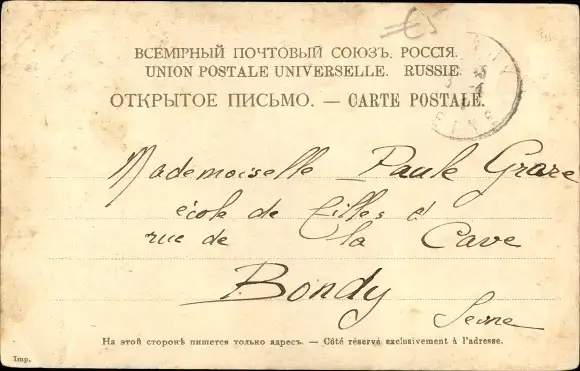 ВСЕМІРНЫЙ ПОЧТОВЫЙ СОЮЗЪ. РОССІЯ.
UNION POSTALE UNIVERSELLE. RUSSIE.
ОТКРЫТОЕ ПИСЬМО. — CARTE POSTALE.
Mademoiselle Paule Grare
école de filles
rue de la Cave
Bondy
Seine
На этой сторонѣ пишется только адресъ. — Côté réservé exclusivement à l'adresse.
Imp.